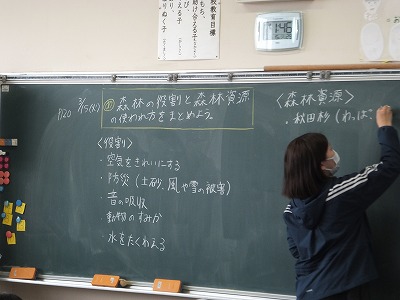 校教育目標
もち、
び
助け合える子
える子
りぬく子
1:46
P.120
3/5(火)
め 森林の役割と森林資源
の使われ方をまとめよう。
<役割>
・空気をきれいにする
・防災(土砂、風や雪の被害)
・音の吸収
動物のすみか
・水をたくわえる
<森林資源>
・秋田杉(わっぱ